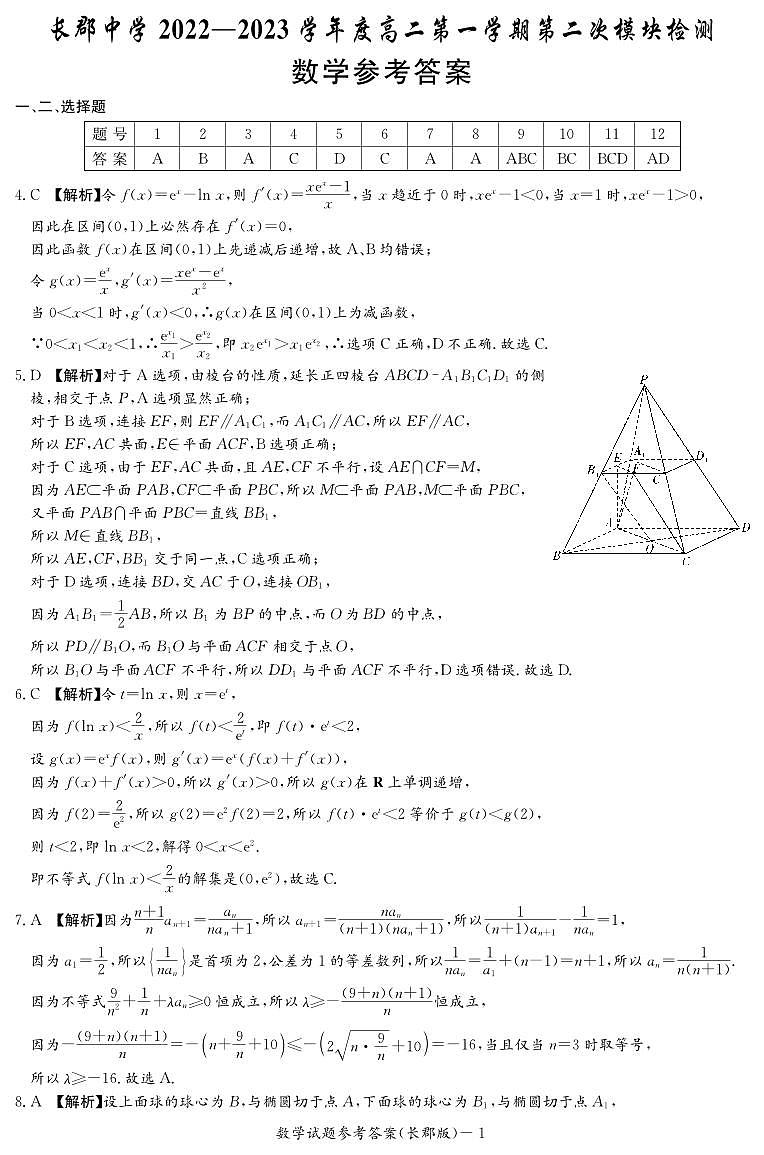 长郡中学 2022—2023 学年度高二第一学期第二次模块检测
数学参考答案
一、二、选择题
题号 1 2 3 4 5 6 7 8 9 10 11 12
答案 A B A C D C A A ABC BC BCD AD
4. C 【解析】令 f(x)=eˣ−ln x,则 f′(x)=(xeˣ−1)/x,当 x 趋近于 0 时,xeˣ−1<0,当 x=1 时,xeˣ−1>0,
因此在区间(0,1)上必然存在 f′(x)=0,
因此函数 f(x)在区间(0,1)上先递减后递增,故 A、B 均错误;
令 g(x)=eˣ/x,g′(x)=(xeˣ−eˣ)/x²,
当 0<x<1 时,g′(x)<0,∴g(x)在区间(0,1)上为减函数,
∵0<x₁<x₂<1,∴e^{x₁}/x₁>e^{x₂}/x₂,即 x₂e^{x₁}>x₁e^{x₂},∴选项 C 正确,D 不正确. 故选 C.
5. D 【解析】对于 A 选项,由棱台的性质,延长正四棱台 ABCD-A₁B₁C₁D₁ 的侧
棱,相交于点 P,A 选项显然正确;
对于 B 选项,连接 EF,则 EF∥A₁C₁,而 A₁C₁∥AC,所以 EF∥AC,
所以 EF,AC 共面,E∈平面 ACF,B 选项正确;
对于 C 选项,由于 EF,AC 共面,且 AE,CF 不平行,设 AE∩CF=M,
因为 AE⊂平面 PAB,CF⊂平面 PBC,所以 M⊂平面 PAB,M⊂平面 PBC,
又平面 PAB∩平面 PBC=直线 BB₁,
所以 M∈直线 BB₁,
所以 AE,CF,BB₁ 交于同一点,C 选项正确;
对于 D 选项,连接 BD,交 AC 于 O,连接 OB₁,
因为 A₁B₁=1/2AB,所以 B₁ 为 BP 的中点,而 O 为 BD 的中点,
所以 PD∥B₁O,而 B₁O 与平面 ACF 相交于点 O,
所以 B₁O 与平面 ACF 不平行,所以 DD₁ 与平面 ACF 不平行,D 选项错误. 故选 D.
P
E A₁ D₁
B₁ F C₁
A D
O
B C
6. C 【解析】令 t=ln x,则 x=eᵗ,
因为 f(ln x)<2/x,所以 f(t)<2/eᵗ,即 f(t)·eᵗ<2,
设 g(x)=eˣf(x),则 g′(x)=eˣ(f(x)+f′(x)),
因为 f(x)+f′(x)>0,所以 g′(x)>0,所以 g(x)在 R 上单调递增,
因为 f(2)=2/e²,所以 g(2)=e²f(2)=2,所以 f(t)·eᵗ<2 等价于 g(t)<g(2),
则 t<2,即 ln x<2,解得 0<x<e².
即不等式 f(ln x)<2/x的解集是(0,e²),故选 C.
7. A 【解析】因为(n+1)/n aₙ₊₁=aₙ/(naₙ+1),所以 aₙ₊₁=naₙ/((n+1)(naₙ+1)),所以1/((n+1)aₙ₊₁)−1/(naₙ)=1,
因为 a₁=1/2,所以{1/(naₙ)}是首项为 2,公差为 1 的等差数列,所以1/(naₙ)=1/a₁+(n−1)=n+1,所以 aₙ=1/(n(n+1)).
因为不等式9/n²+1/n+λaₙ≥0 恒成立,所以 λ≥−(9+n)(n+1)/n恒成立,
因为−(9+n)(n+1)/n=−(n+9/n+10)≤−(2√(n·9/n)+10)=−16,当且仅当 n=3 时取等号,
所以 λ≥−16. 故选 A.
8. A 【解析】设上面球的球心为 B,与椭圆切于点 A,下面球的球心为 B₁,与椭圆切于点 A₁,
数学试题参考答案(长郡版)－1